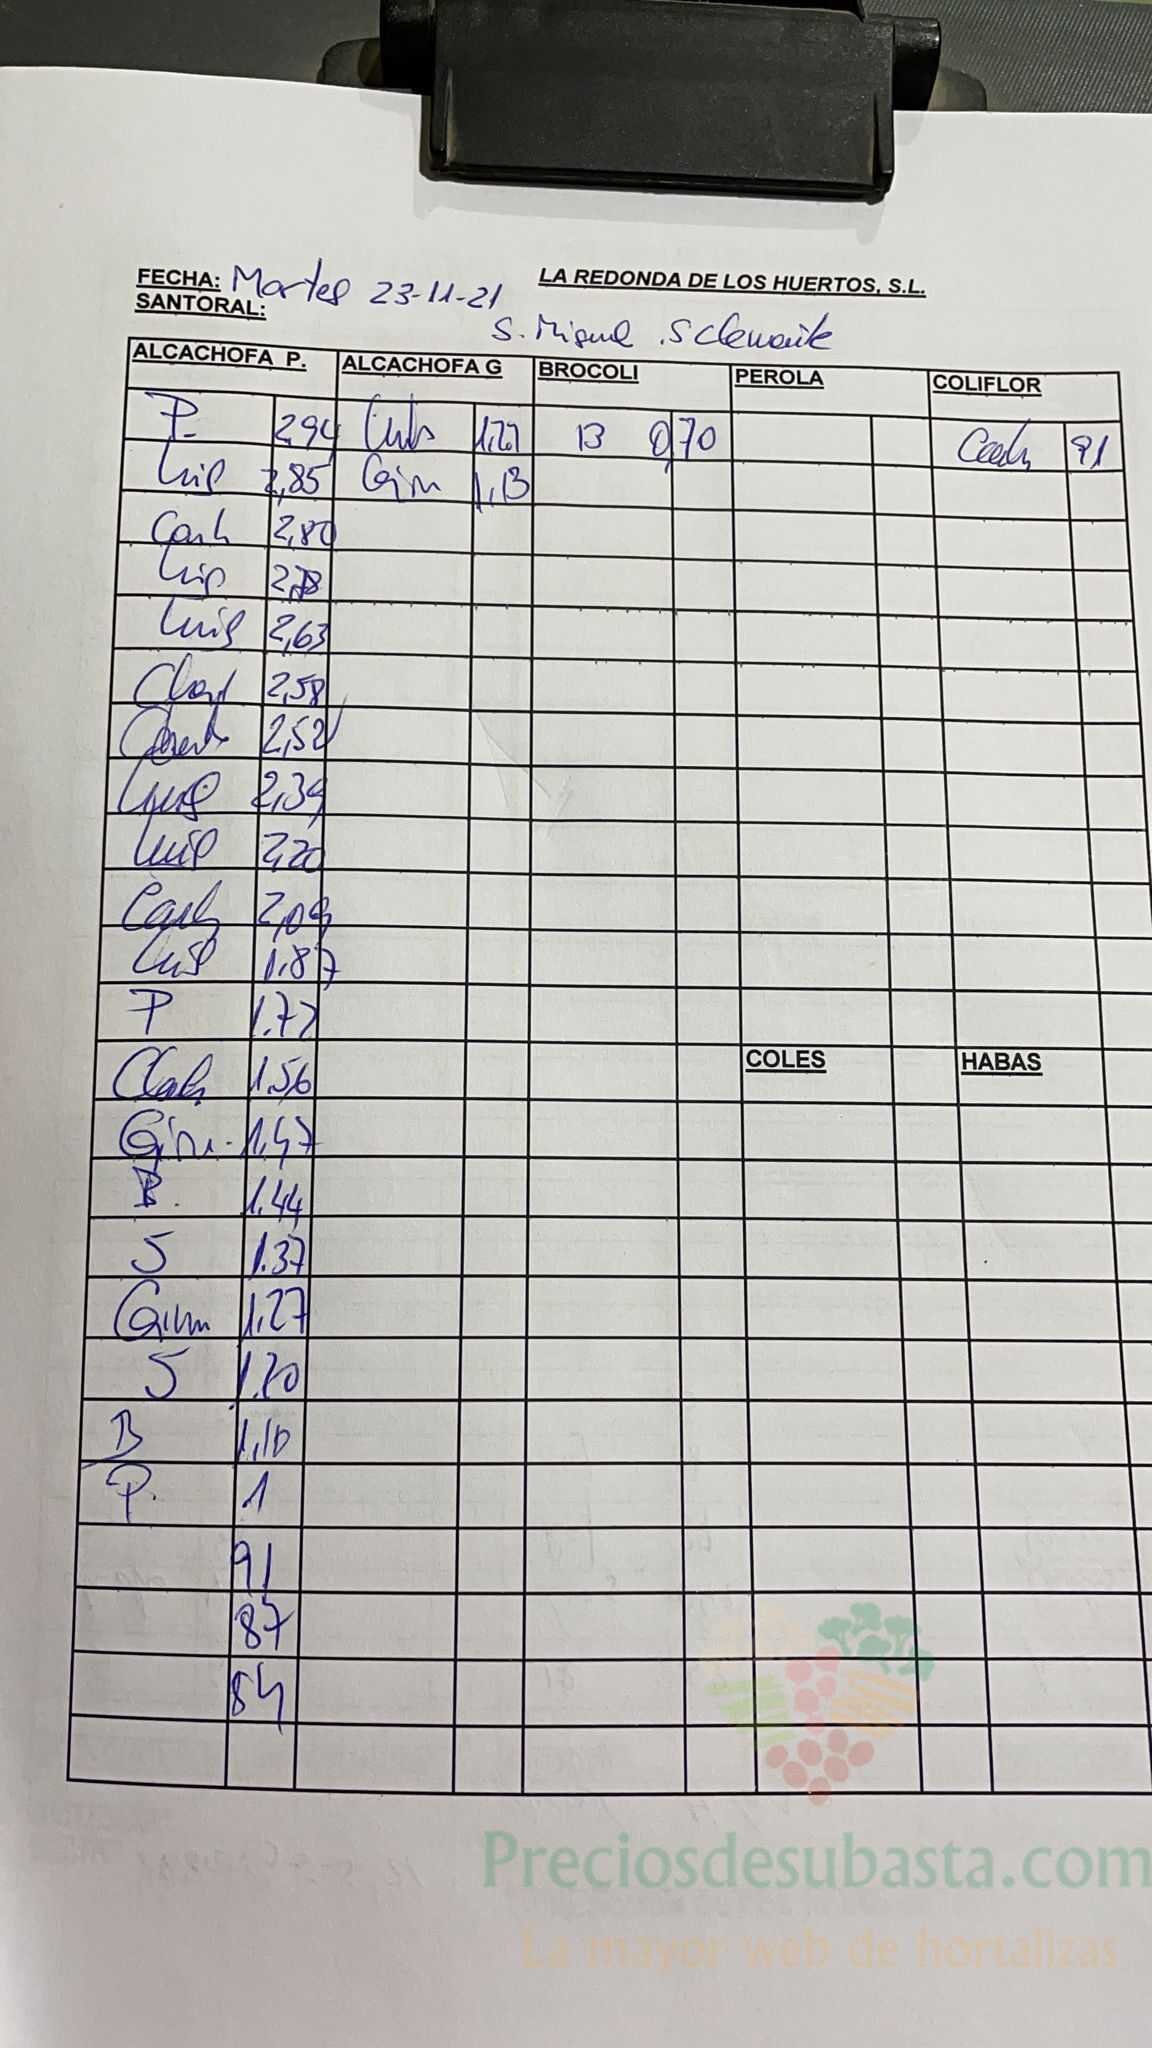 FECHA: Martes 23-11-21 LA REDONDA DE LOS HUERTOS, S.L.
SANTORAL: S. Miguel . S Clemente
ALCACHOFA P. ALCACHOFA G BROCOLI PEROLA COLIFLOR
P. 2,94 Luis 1,27 B 0,70 Carlos 91
Luis 2,85 Gim 1,13
Carlos 2,80
Luis 2,78
Luis 2,63
2,58
2,52
Luis 2,39
Luis 2,20
Carlos 2,09
Luis 1.87
P 1.77
COLES HABAS
1.56
Gim. 1,47
B. 1.44
S 1.37
Gim 1,27
S 1.20
B 1,10
P. 1
91
87
84
Preciosdesubasta.com
La mayor web de hortalizas